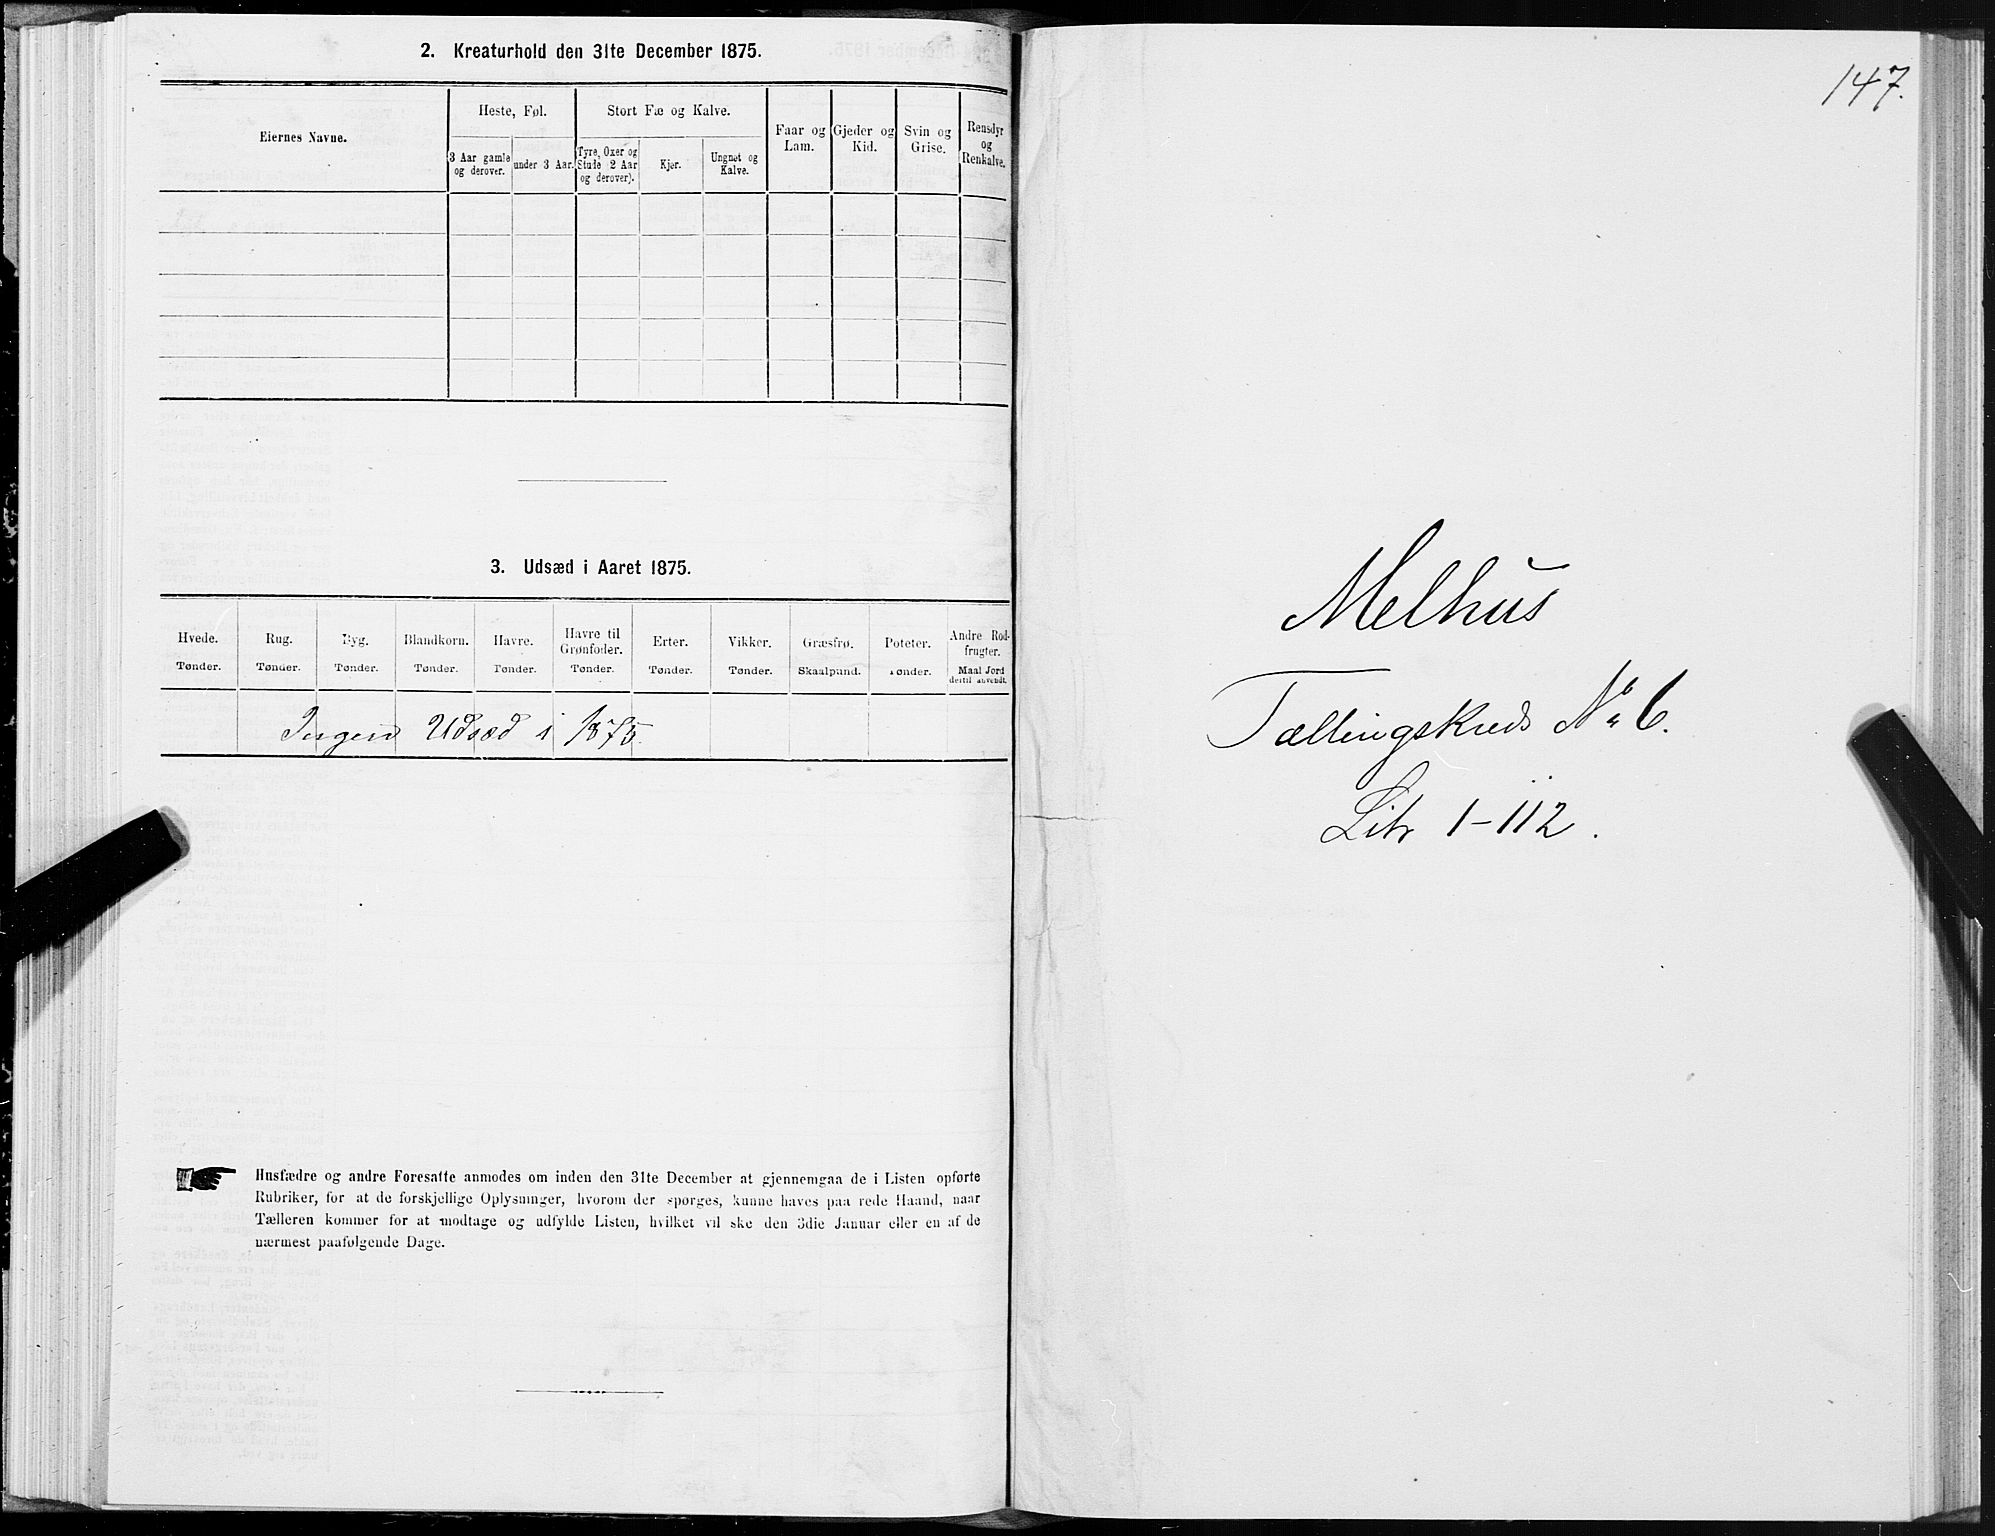 2. Kreaturhold den 31te December 1875.
Eiernes Navne.
Heste, Føl.
Stort Fæ og Kalve.
Faar og Lam.
Gjeder og Kid.
Svin og Grise.
Rensdyr og Renkalve.
3 Aar gamle og derover.
under 3 Aar.
Tyre, Oxer og Stude (2 Aar og derover).
Kjør.
Ungnøt og Kalve.
3. Udsæd i Aaret 1875.
Hvede. Rug. Byg. Blandkorn. Havre. Havre til Grønfoder. Erter. Vikker. Græsfrø. Poteter. Andre Rodfrugter.
Tønder. Tønder. Tønder. Tønder. Tønder. Tønder. Tønder. Tønder. Skaalpund. Tønder. Maal Jord dertil anvendt.
Ingen Udsæd i 1875.
Husfædre og andre Foresatte anmodes om inden den 31te December at gjennemgaa de i Listen opførte
Rubriker, for at de forskjellige Oplysninger, hvorom der spørges, kunne haves paa rede Haand, naar
Tælleren kommer for at modtage og udfylde Listen, hvilket vil ske den 3die Januar eller en af de
nærmest paafølgende Dage.
147.
Melhus
Tællingskreds No 6.
Litr 1-112.